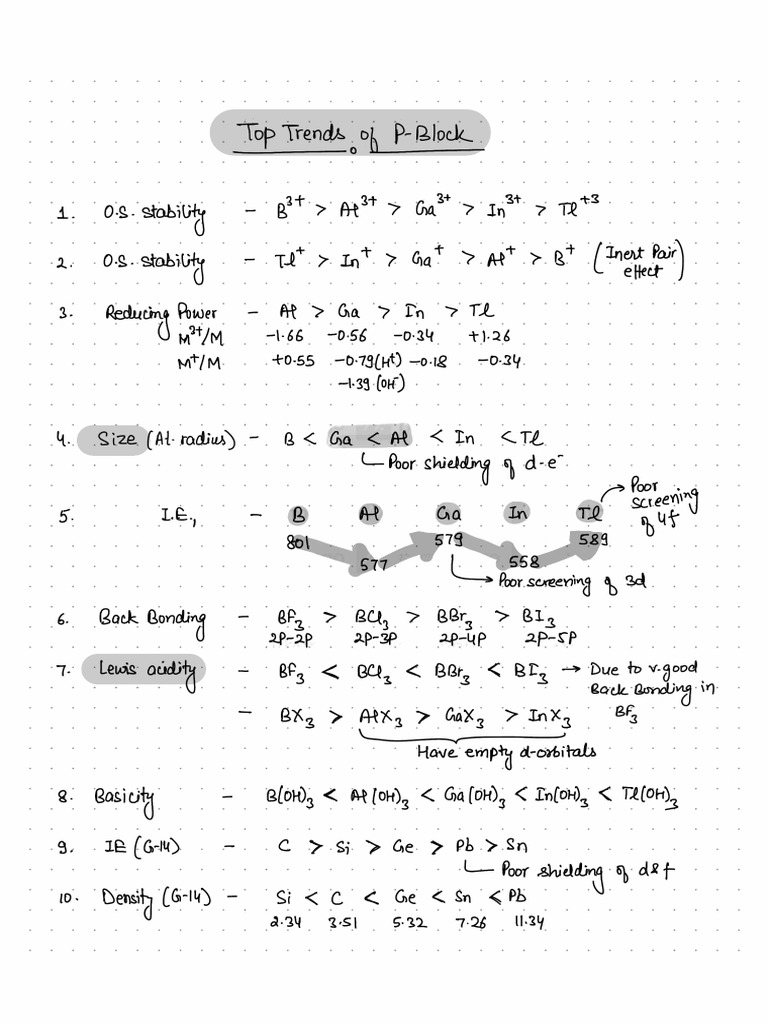 Top Trends of P-Block
1. O.S. stability - B³⁺ > Al³⁺ > Ga³⁺ > In³⁺ > Tl⁺³
2. O.S. stability - Tl⁺ > In⁺ > Ga⁺ > Al⁺ > B⁺ (Inert Pair effect)
3. Reducing Power - Al > Ga > In > Tl
M³⁺/M -1.66 -0.56 -0.34 +1.26
M⁺/M +0.55 -0.79(H⁺) -0.18 -0.34
-1.39 (OH⁻)
4. Size (At. radius) - B < Ga < Al < In < Tl
Poor shielding of d-e⁻
Poor screening of 4f
5. I.E., - B Al Ga In Tl
801 577 579 558 589
Poor screening of 3d
6. Back Bonding - BF₃ > BCl₃ > BBr₃ > BI₃
2P-2P 2P-3P 2P-4P 2P-5P
7. Lewis acidity - BF₃ < BCl₃ < BBr₃ < BI₃ → Due to v.good Back Bonding in BF₃
- BX₃ > AlX₃ > GaX₃ > InX₃
Have empty d-orbitals
8. Basicity - B(OH)₃ < Al(OH)₃ < Ga(OH)₃ < In(OH)₃ < Tl(OH)₃
9. IE (G-14) - C > Si > Ge > Pb > Sn
Poor shielding of d&f
10. Density (G-14) - Si < C < Ge < Sn < Pb
2.34 3.51 5.32 7.26 11.34